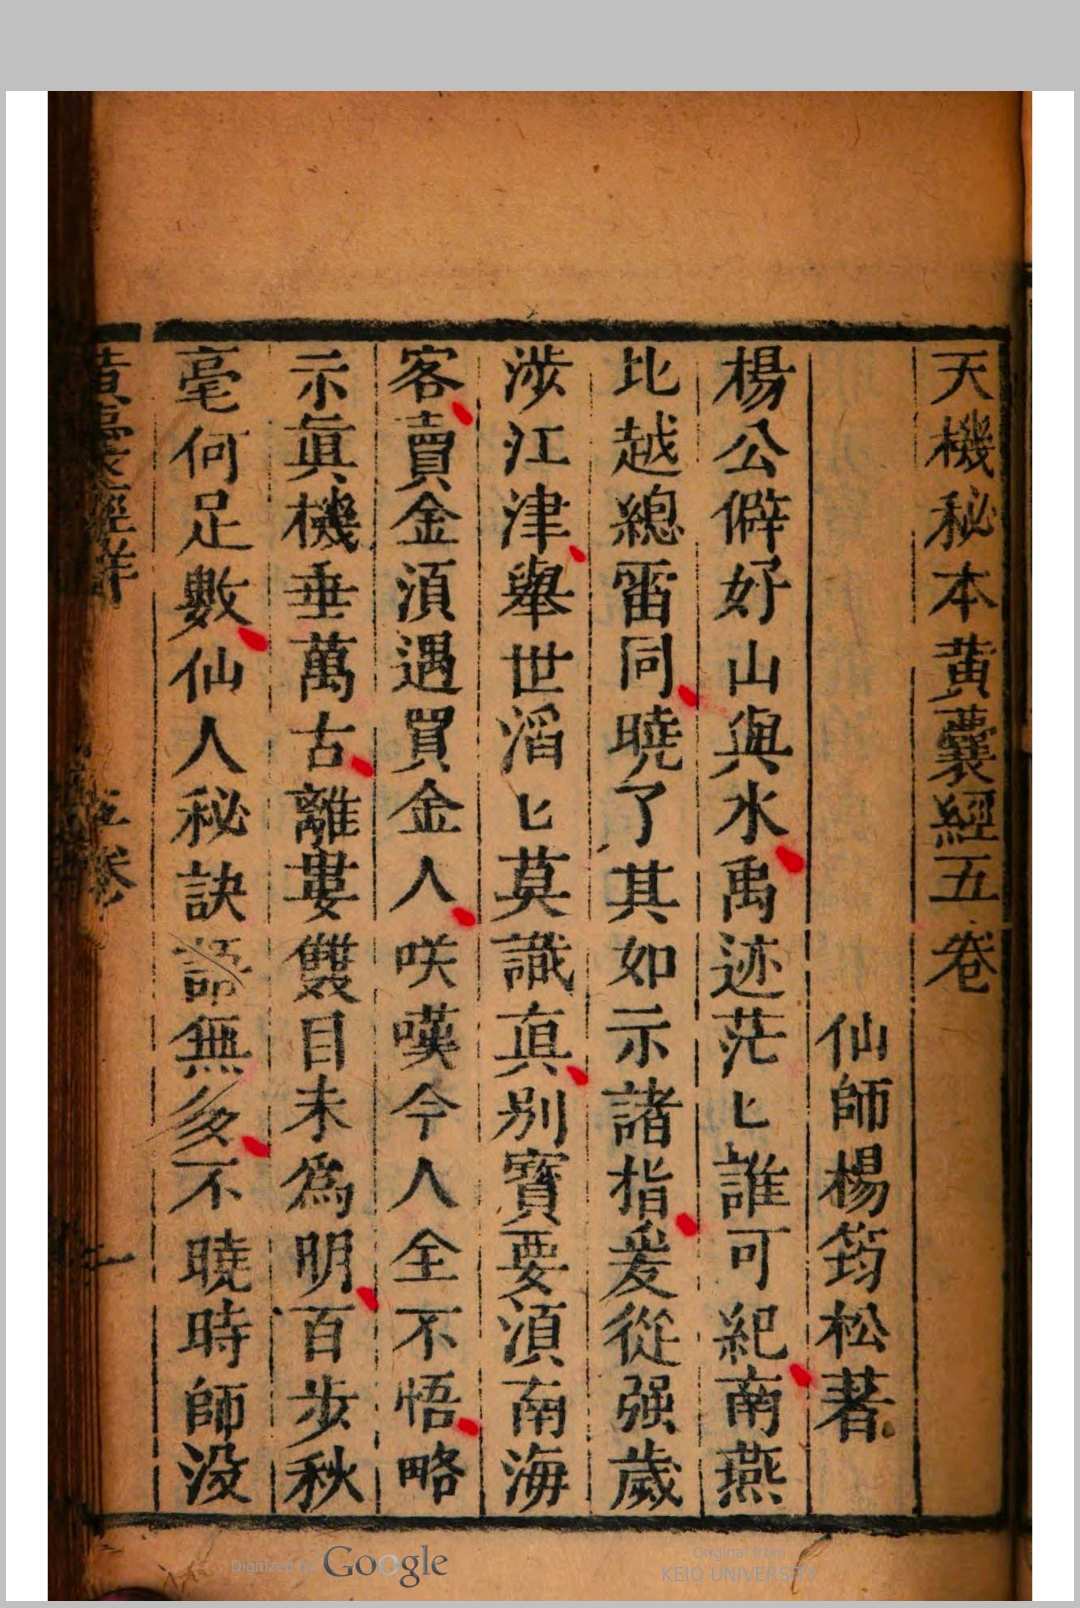 天機秘本黄囊經五卷
仙師楊筠松著
楊公僻好山與水禹迹茫匕誰可紀南燕
北越總畱同曉了其如示諸指爰從强歲
涉江津舉世滔匕莫識真别寶要湏南海
客賣金湏遇買金人咲嘆今人全不悟略
示眞機垂萬古離婁雙目未為明百步秋
毫何足數仙人秘訣語無多不曉時師没
黄囊經詳
五卷
一
Digitized by Google
Original from
KEIO UNIVERSITY